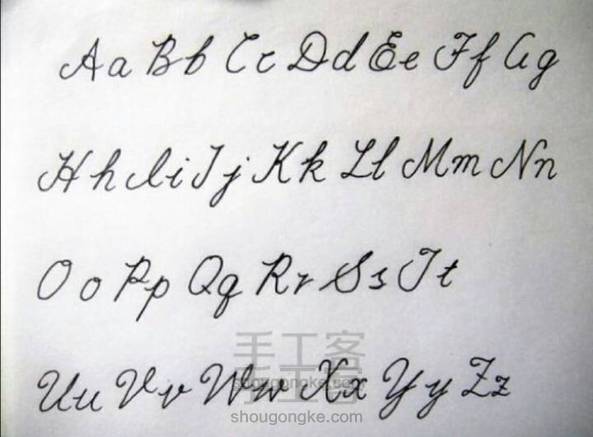 Aa Bb Cc Dd Ee Ff Gg
Hh Ii Jj Kk Ll Mm Nn
Oo Pp Qq Rr Ss Tt
手工客
shougongke.com
Uu Vv Ww Xx Yy Zz
手工客
shougongke.com